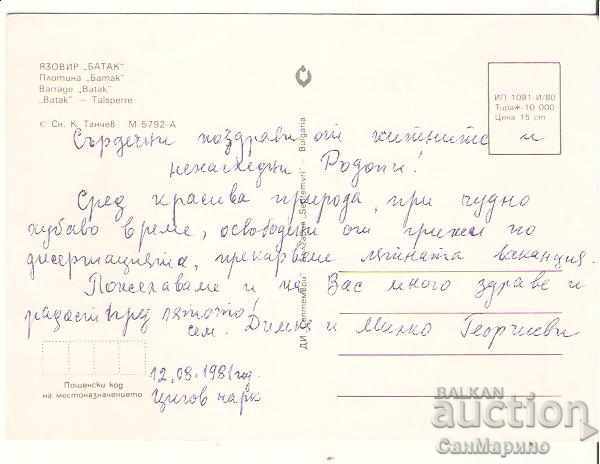 ЯЗОВИР „БАТАК"
Плотина „Батак"
Barrage „Batak"
„Batak" — Talsperre
© Сн. К. Танчев М 5792-А
ИП 1091-И/80
Тираж 10 000
Цена 15 ст.
Сърдечни поздрави от китните и
ненагледни Родопи!
Сред красива природа, при чудно
хубаво време, освободени от грижи по
дисертацията, прекарваме лятната ваканция.
Пожелаваме и на Вас много здраве и
радост през лятото!
сем. Димка и Милко Георгиеви
12.08.1981 год.
Цигов чарк
Пощенски код
на местоназначението
ДИ „Септември" „Septemvri" - Bulgaria
BALKAN
auction
СанМарино